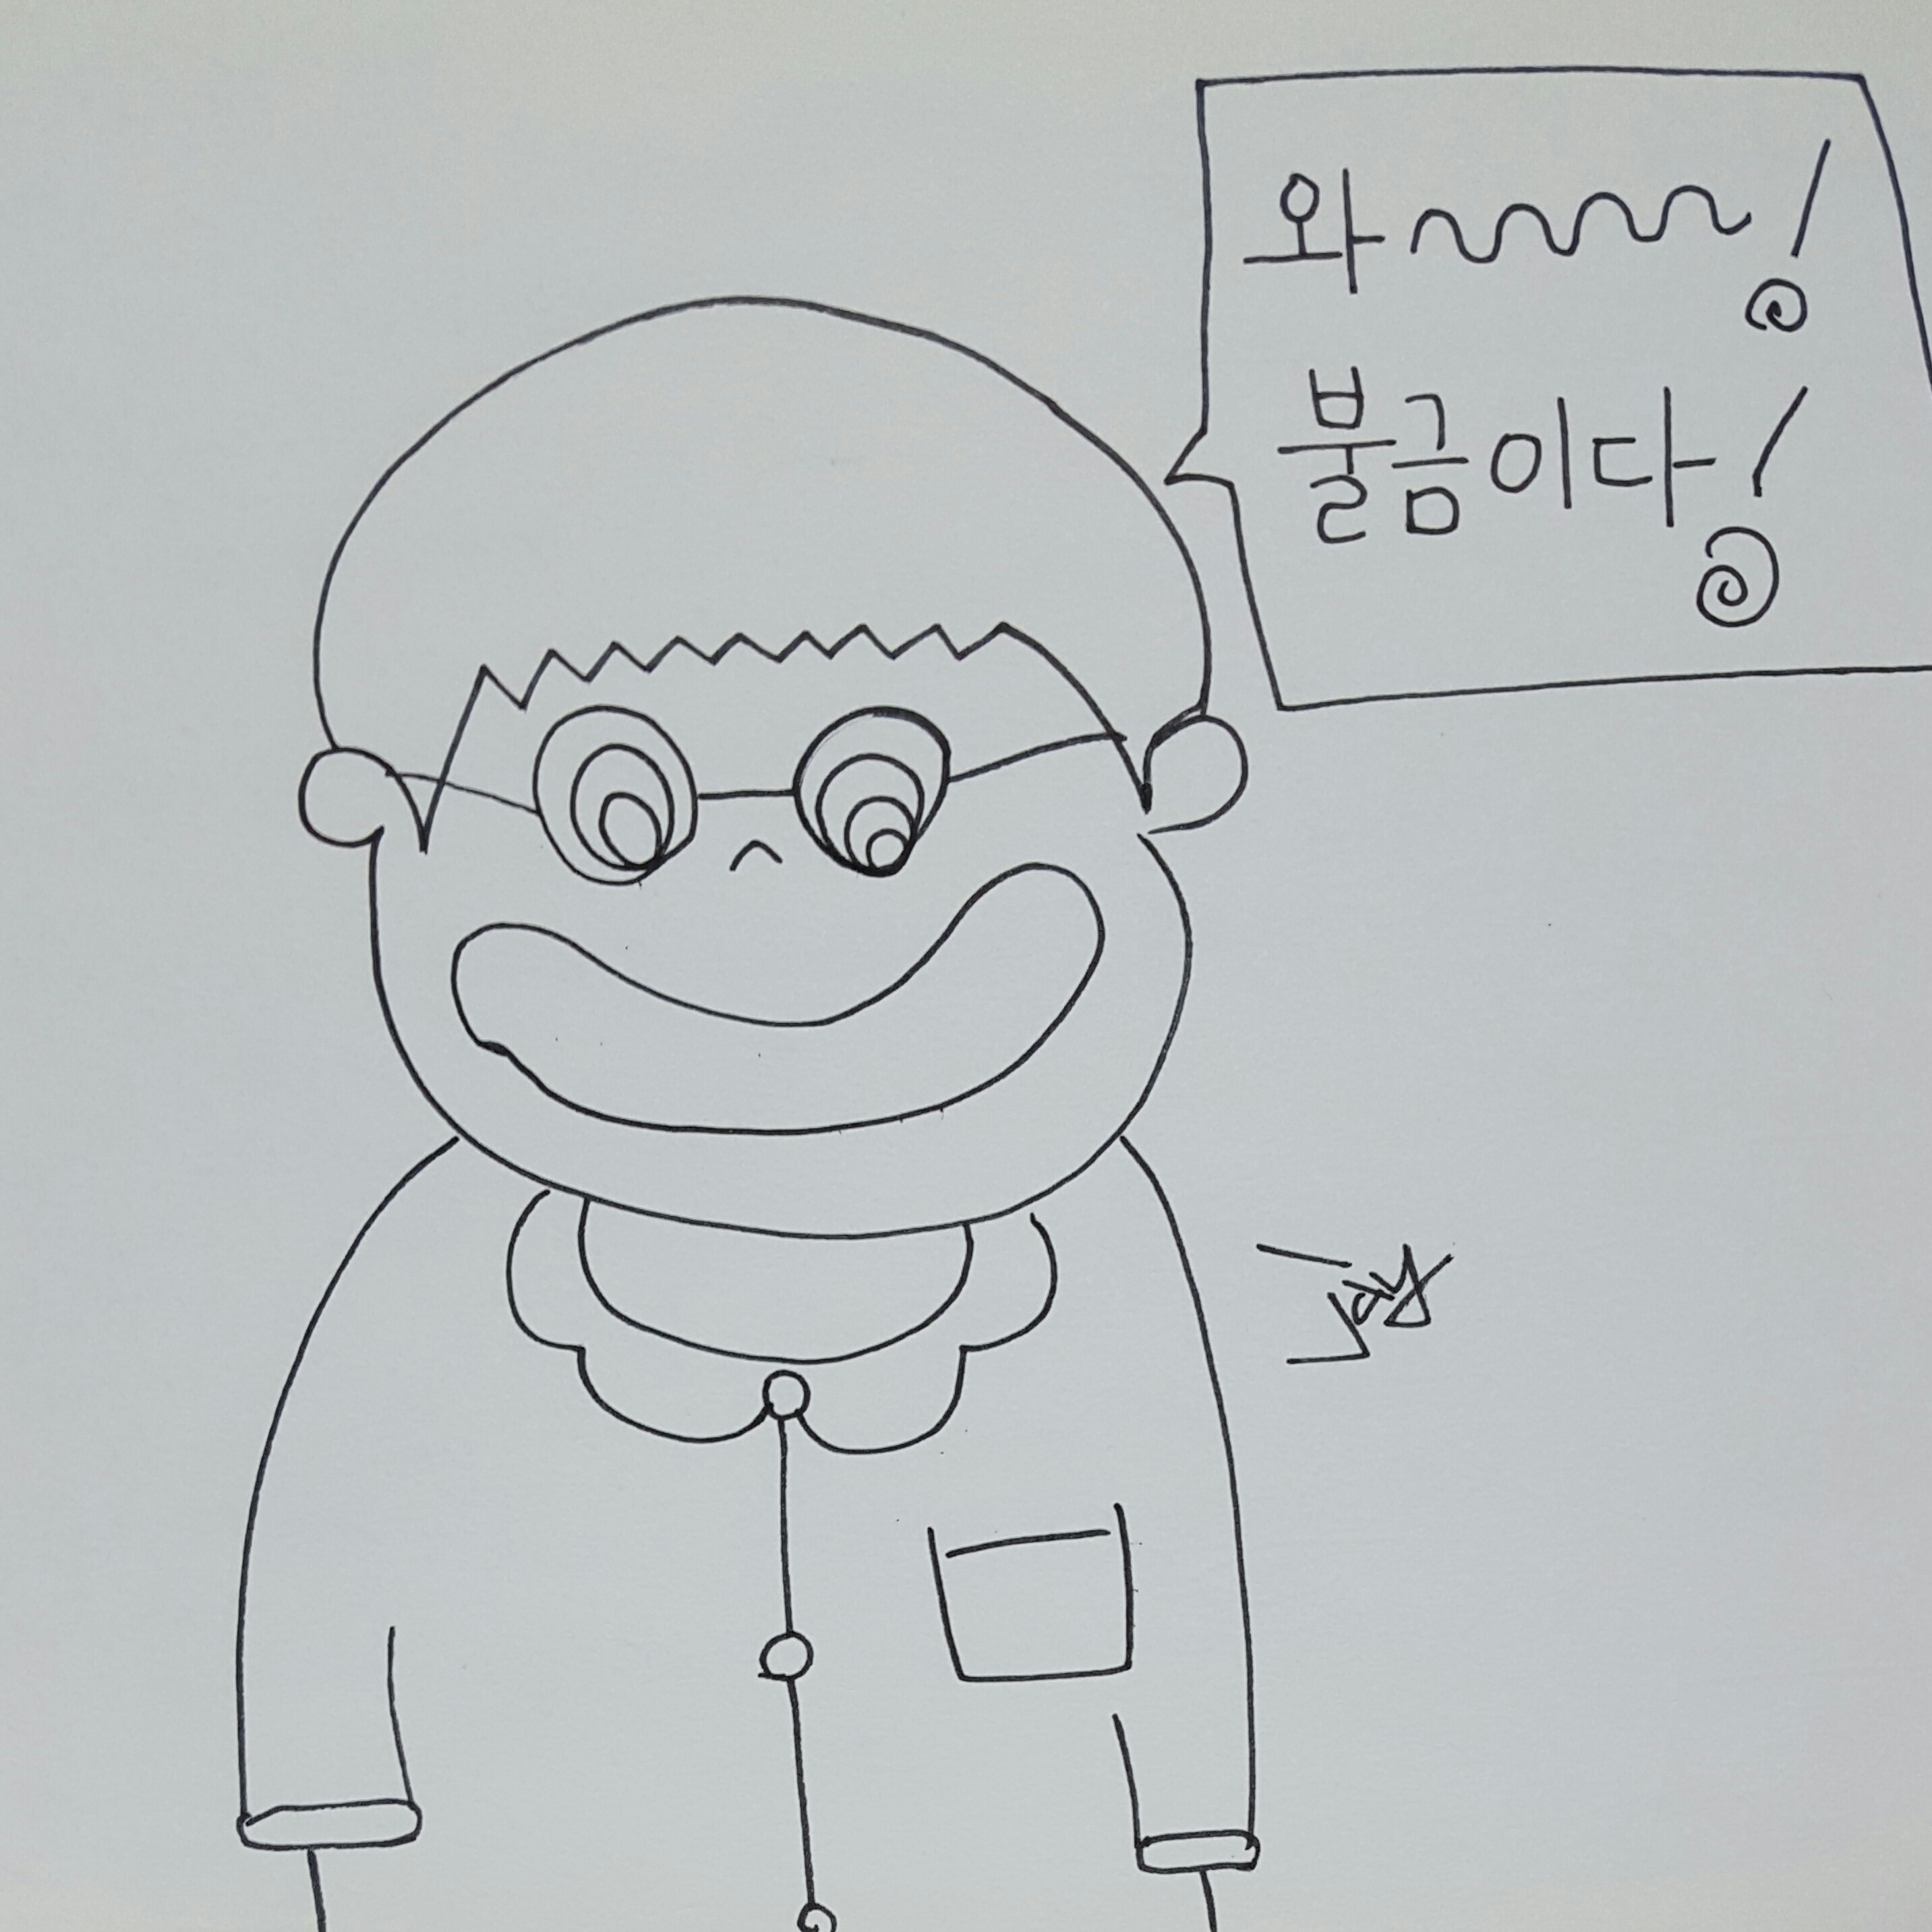 와~~~~!
불금이다!
Jay